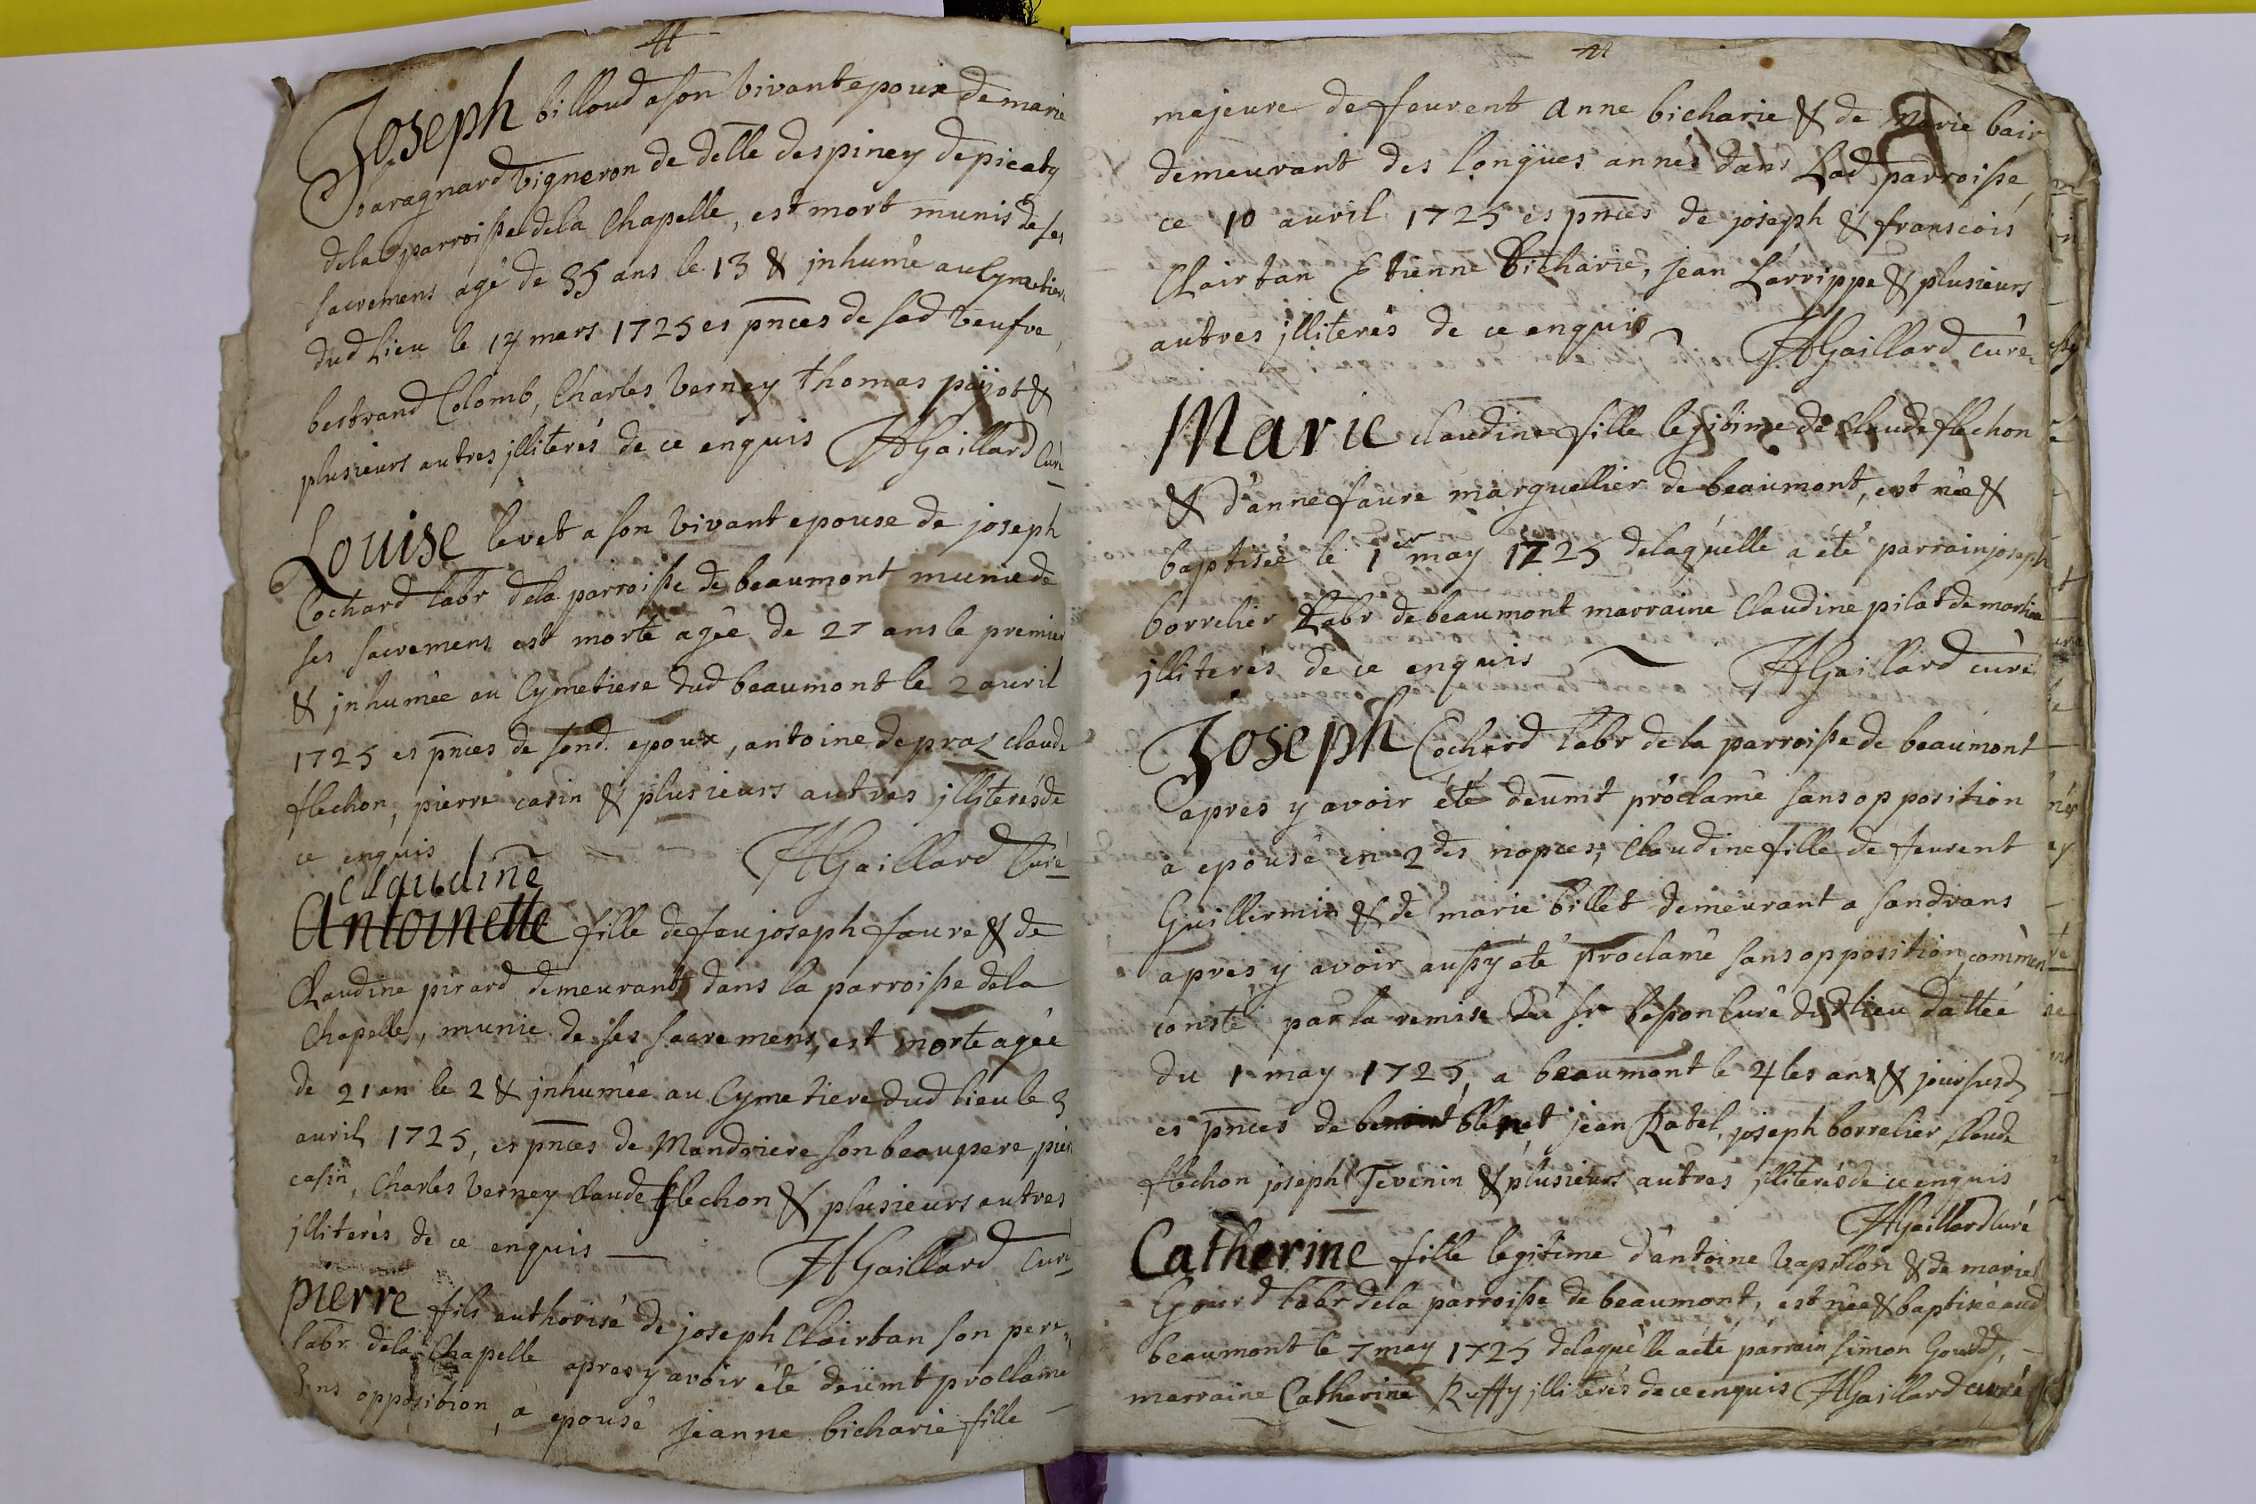 Joseph billoud a son vivant epoux de marie
baragnard vigneron de delle despiney de picaty
dela parroisse dela Chapelle, est mort munis de ses
sacremens agé de 35 ans le 13 & jnhumé au Cymetiere
dud lieu le 14 mars 1725 es pnces de sad veufve,
bertrand Colomb, Charles Verney thomas pajot &
plusieurs autres jlliterés de ce enquis HGaillard Curé
Louise levet a son vivant epouse de joseph
Cochard labr dela parroisse de beaumont munie de
ses sacremens est morte agée de 27 ans le premier
& jnhumée au Cymetiere dud beaumont le 2 avril
1725 es pnces de sond. epoux, antoine depraz claude
flechon, pierre casin & plusieurs autres jlliterés de
ce enquis HGaillard Curé
Claudine
Antoinette fille de feu joseph faure & de
Claudine pirard demeurant dans la parroisse dela
Chapelle, munie de ses sacremens, est morte agée
de 21 an le 2 & jnhumée au Cymetiere dud lieu le 3
avril 1725, es pnces de Mandriere son beaupere, pier
casin, Charles Verney Claude flechon & plusieurs autres
jlliterés de ce enquis HGaillard Curé
pierre fils authorisé de joseph Clairtan son pere,
labr dela Chapelle apres y avoir été deümt proclamé
sans opposition, a epousé jeanne bicharie fille
majeure de feurent anne bicharie & de Marie bair
demeurant des longües annés dans Lad parroisse,
ce 10 avril 1725 es pnces de joseph & franscois
Clairtan Etienne Bicharie, jean Larrippe & plusieurs
autres jlliterés de ce enquis HGaillard curé
Marie claudine fille legitime de Claude flechon
& d'anne faure marguellier de beaumont, est née &
baptisée le 1er may 1725 delaquelle a été parrain joseph
borrelier Labr de beaumont marraine Claudine pilat de
jlliterés de ce enquis HGaillard curé
Joseph Cochard labr de la parroisse de beaumont
apres y avoir été deümt proclamé sans opposition
a epousé en 2des nopces, Claudine fille de feurent
Guillermin & de marie billet demeurant a sandrans
apres y avoir aussy été proclamé sans opposition, comme
consté par la remise du sr besson Curé dud lieu dattée
du 1 may 1725, a beaumont le 4 les an & jour susd
es pnces de benoit blenet jean Ratel, joseph borrelier Claude
flechon joseph Tevenin & plusieurs autres jlliterés de ce enquis
HGaillard curé
Catherine fille legitime d'antoine Vapillon & de marie
Gourd labr dela parroisse de beaumont, est née & baptisée aud
beaumont le 7 may 1725 delaquelle a été parrain simon Gourd,
marraine Catherine Ruffy jlliterés de ce enquis HGaillard curé